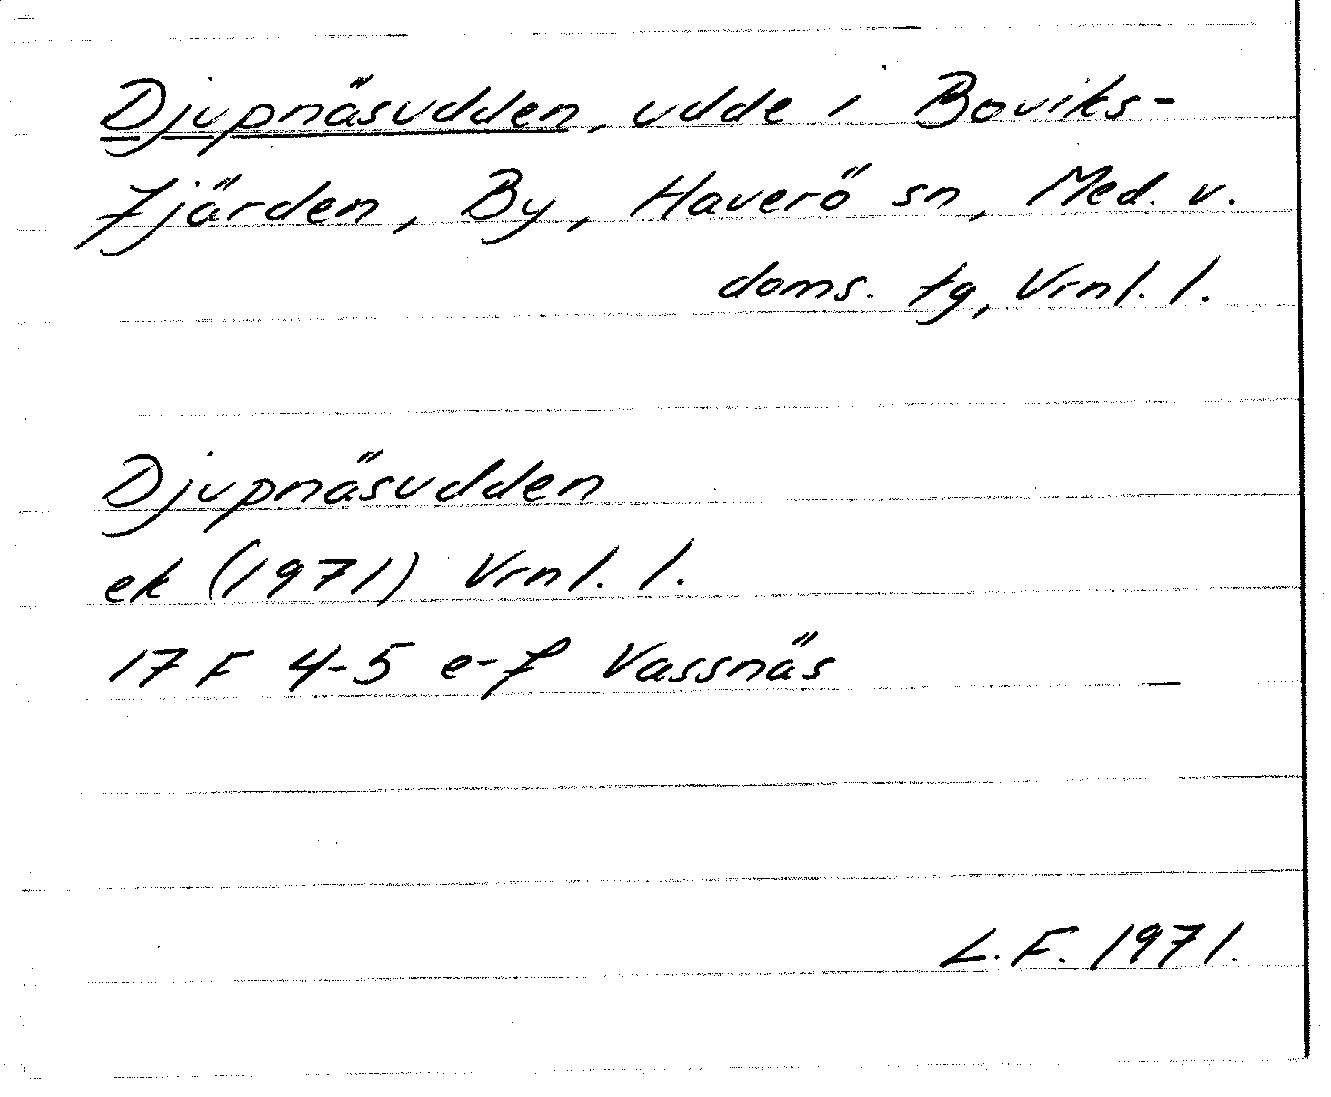 Djupnäsudden, udde i Boviks-
fjärden, By, Haverö sn, Med. v.
doms. tg, Vrnl. l.
Djupnäsudden
ek (1971) Vrnl. l.
17 F 4-5 e-f Vassnäs
L. F. 1971.